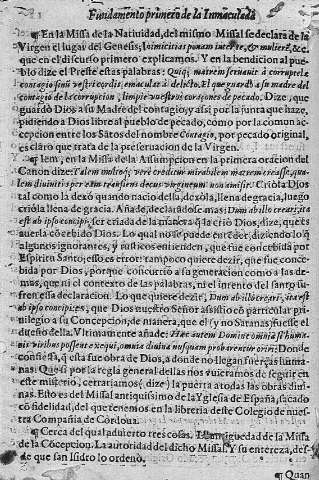 Fundamento primero de la Inmaculada
¶ En la Missa de la Natividad, del mismo Missal se declara de la
Virgen el lugar del Genesis, Inimicitias ponam inter te, & mulierē, &c.
que en el discurso primero explicamos. Y en la bendicion al pue
blo dize el Preste estas palabras: Quiqi matrem servavit à corruptelæ
contagio sinè vestris cordis, emaculet à delicto. El que guardò a su madre del
contagio de la corrupcion, limpie vuestros coraçones de pecado. Dize, que
guardò Dios a su Madre del contagio, y assi por la junta que haze,
pidiendo a Dios libre al pueblo de pecado, como por la comun ac
cepcion entre los Sātos del nombre Contagio, por pecado original,
es claro que trata de la preservacion de la Virgen.
¶ Item, en la Missa de la Assumpcion en la primera oracion del
Canon dize: Talem credidit
lem divinitas per eam transiens decus virgineum non amisit. Criòla Dios
tal como la dexò quando naciò della, dexòla, llena de gracia, luego
criòla llena de gracia. Añade, declarādose mas: Dum ab illo creari, ita
est ab ipso concipi, ser criada de la manera q̃ la criò Dios, dize, que es
averla cōcebido Dios. Lo qual no se puede entēder, diziendo lo q̃
algunos ignorantes, y rusticos entienden, que fue concebida por
Espiritu Santo, esso es error: tampoco quiere dezir, que fue conce
bida por Dios, porque concurriò a su generacion como a las de-
mas, que ni el contexto de las palabras, ni el intento del santo su-
fren essa declaracion. Lo que quiere dezir, Dum ab illo creari, ita est
ab ipso concipi, es, que Dios nuestro Señor assistio cō particular pri-
vilegio a su Concepcion, de manera, que el y no Satanas fuesse el
dueño della. Vltimamente añade: Hæc autem Domine omnia si huma
nis viribus possent exequi, omnia divina nusquam probarentur oriri. Donde
confiessa, q̃ esta fue obra de Dios, a donde no llegan fuerças huma
nas. Que si por la regla general dellas nos vuieramos de regir en
este misterio, cerrariamos (dize) la puerta a todas las obras divi-
nas. Esto es del Missal antiquissimo de la Yglesia de España, sacado
cō fidelidad, del que tenemos en la libreria deste Colegio de nuestra
Compañia de Cordoua.
¶ Cerca del qual advierto tres cosas. La antiguedad de la Missa
de la Cōcepcion. La autoridad del dicho Missal. Y su entereza, des-
de que san Isidro lo ordenò.
¶ Quan